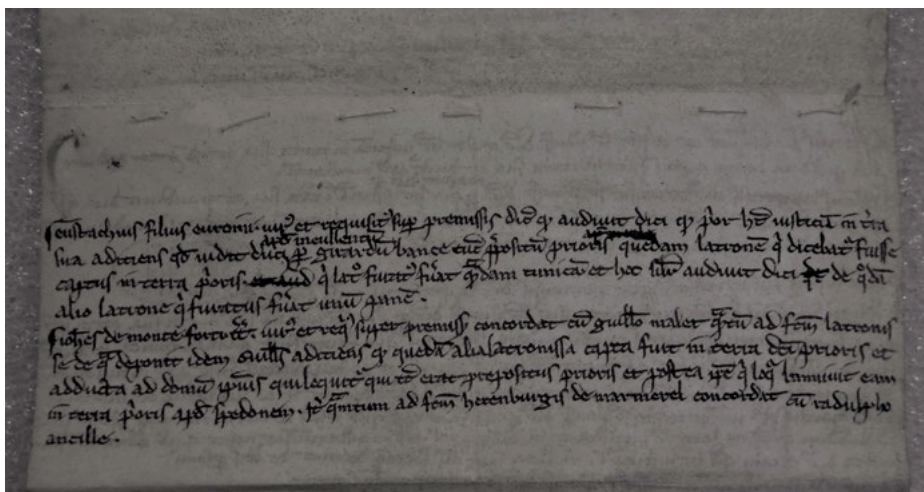 Eustachius filius euronii. iur᷒ et requisit᷒ sup̱ premissis dic̄ qᷓ audiuit dici qᷓ p̓or h̄t iusticiā in t̓ra
sua adiciens qd̄ uidit duci p̱ girardū bance tūc p̄positū prioris quēdam latronē q̓ dicebat᷒ fuisse
captus in terra p̓oris. q̓ lat᷒ furat᷒ fu̓at qᷓdam tunicā et hoc audiuit dici de qᵒdā
alio latrone q̓ furatus fu̓at unū panē.
Ioh̄es de monte forti iur᷒ et req᷒ super premiss̄ concordat cū guillo malet qᷓtū ad fc̄m latronis
se de qᵃ deponit idem Guill̄s adiciens qᷓ quedā alia latronissa capta fuit in terra dc̄i prioris et
adducta ad domū ip̄ius qui loquit᷒ qui tc̄ erat prepositus prioris et postea ip̄e q̓ loq᷒ banniuit eam
in terra p̓oris ap̱d spedonem. It̄ qᷓntum ad fc̄m herenburgis de marmerel concordat cū radulpho
ancille.